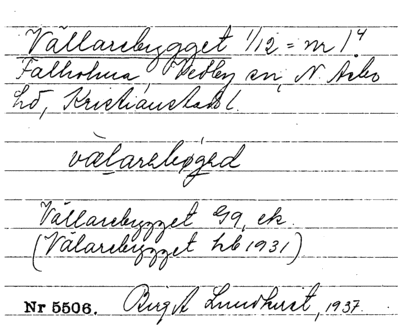 Vällarebygget 1/12 = nr 1⁴
Falholma, Vedby sn, N. Åsbo
hd, Kristianstads l.
välarebøged
Vällarebygget G9, ek.
(Välarebygget hb 1931)
Nr 5506. Birgit Lundkvist, 1937.